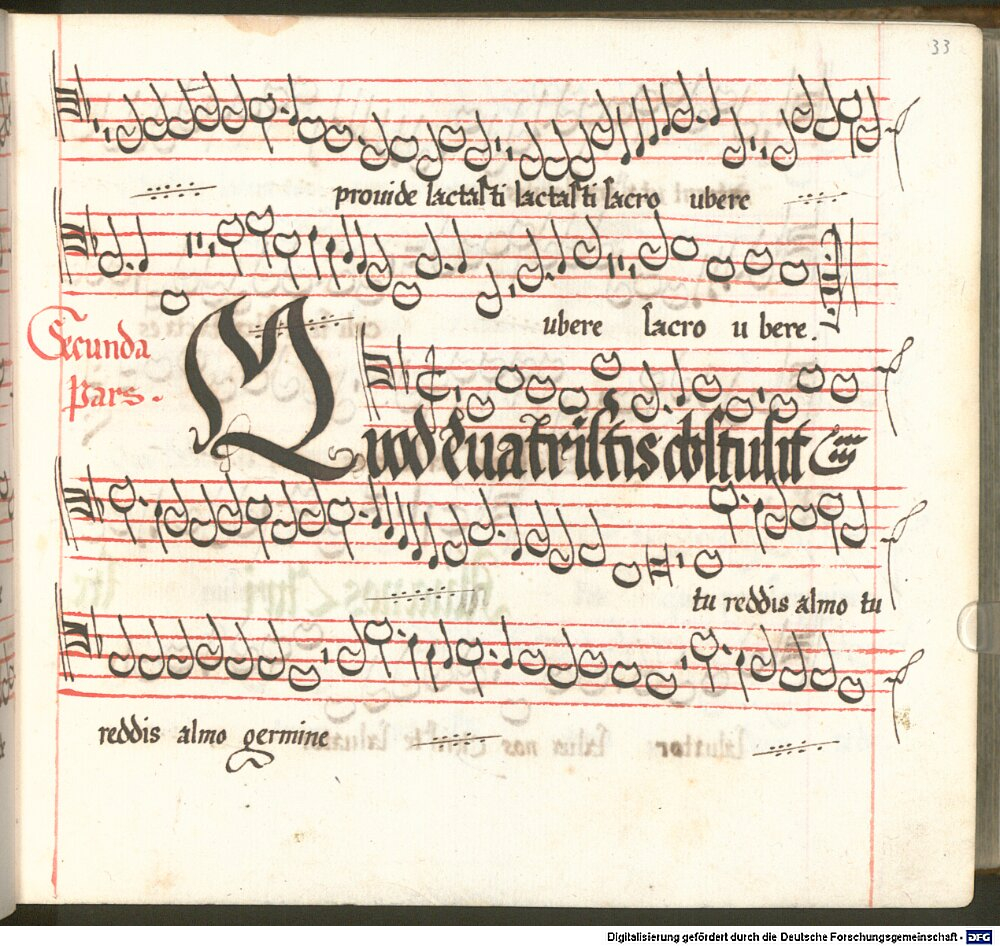 33
prouide lactasti lactasti sacro ubere
ubere sacro ubere.
Secunda
Pars.
Quod eua tristis abstulit
tu reddis almo tu
reddis almo germine
Digitalisierung gefördert durch die Deutsche Forschungsgemeinschaft - DFG